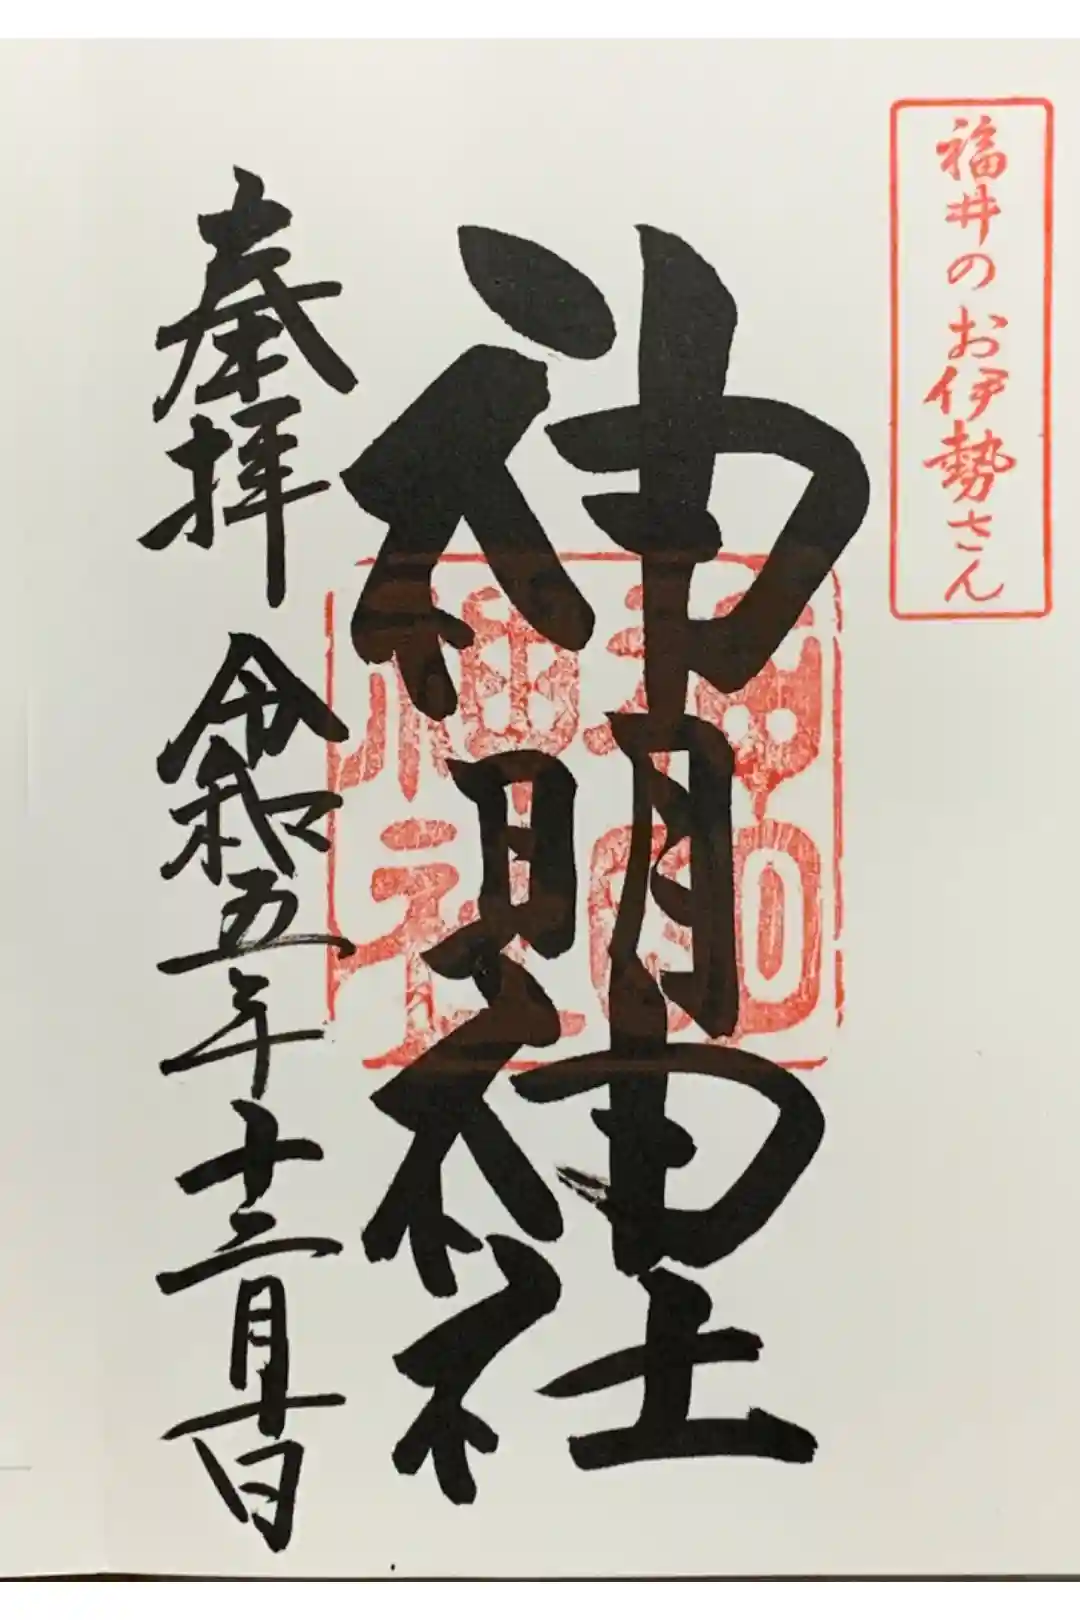 福井のお伊勢さん
神明神社
神明神社
奉拝
令和五年十二月十日